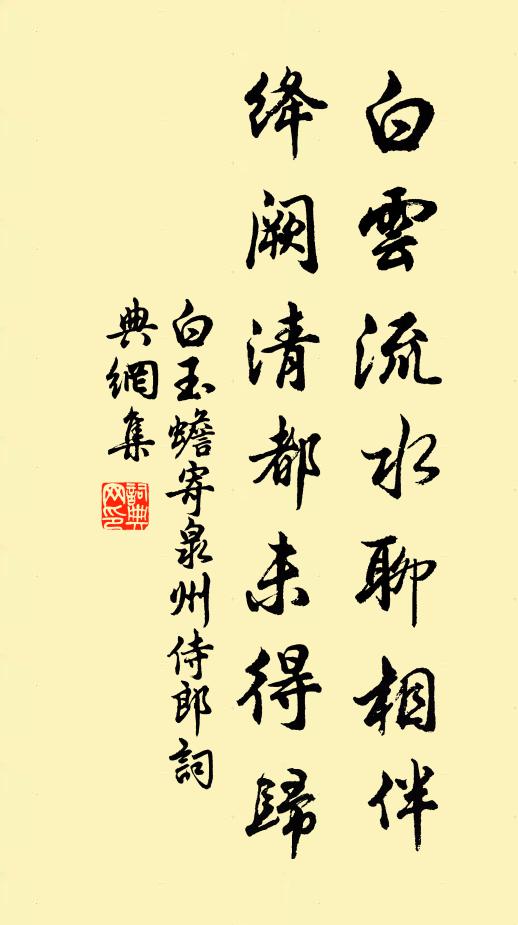 白雲流水聊相伴
絳闕清都未得歸
白玉蟾寄泉州侍郎詞
典網集
詞典網印